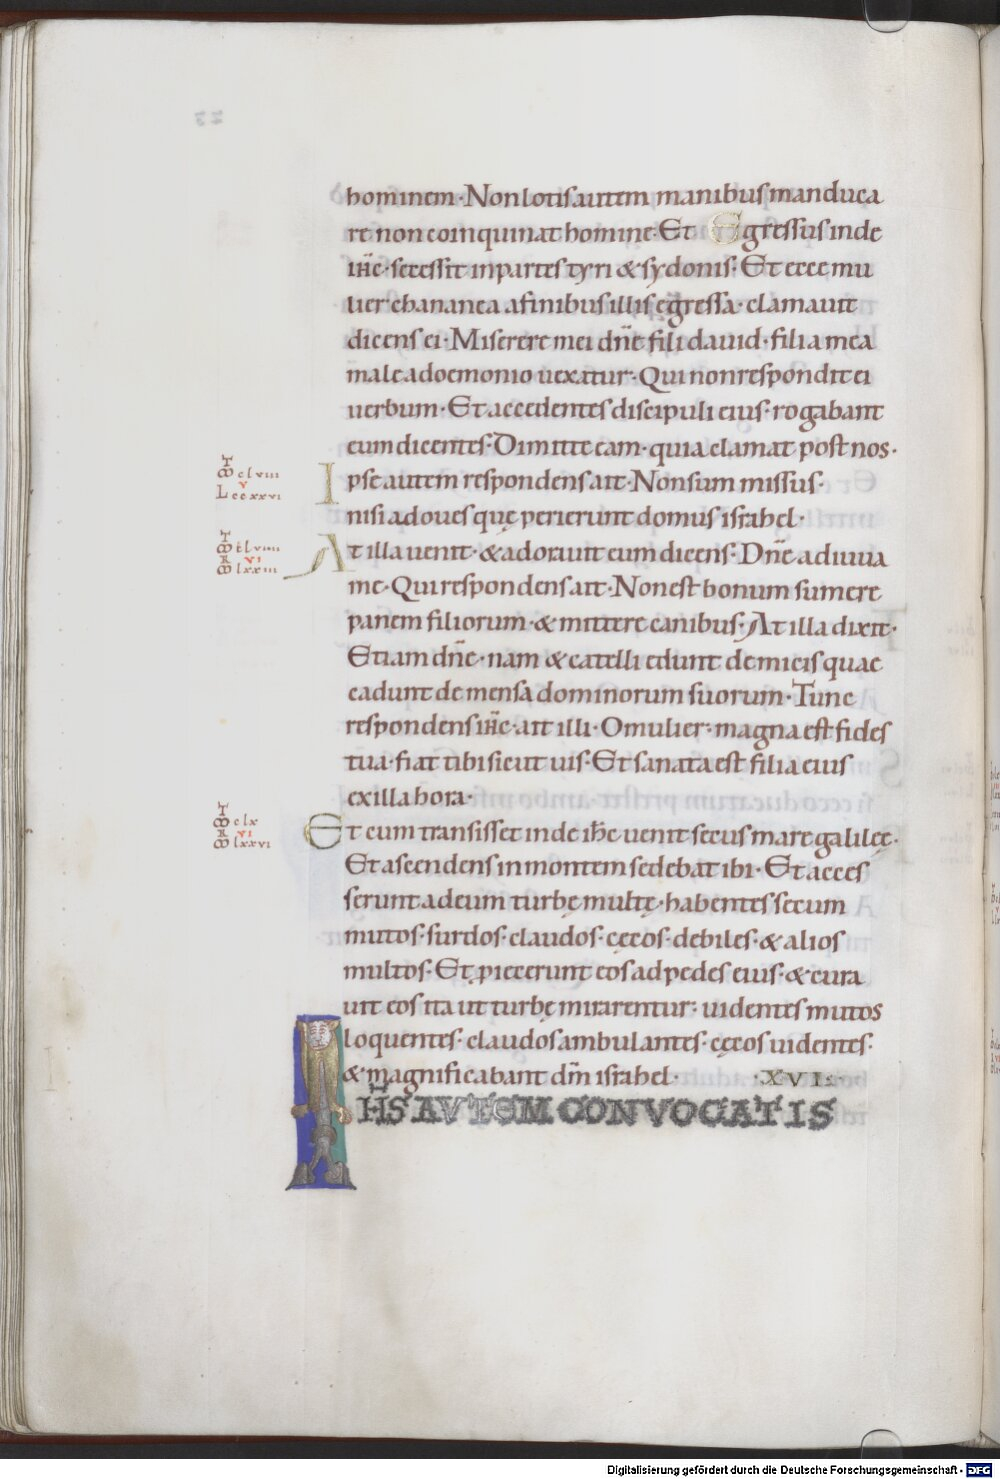 hominem · Non lotis autem manibus manduca
re · non coinquinat homine · Et Egressus inde
ih̅c · secessit in partes tyri & sydonis · Et ecce mu
lier chananea a finibus illis egressa · clamauit
dicens ei · Miserere mei dn̅e fili dauid · filia mea
male a doemonio uexatur · Qui non respondit ei
uerbum · Et accedentes discipuli eius · rogabant
eum dicentes · Dimitte eam · quia clamat post nos ·
Ipse autem respondens ait · Non sum missus ·
nisi ad oues quę perierunt domus israhel ·
At illa uenit · & adorauit eum dicens · Dn̅e adiuua
me · Qui respondens ait · Non est bonum sumere
panem filiorum · & mittere canibus · At illa dixit ·
Etiam dn̅e · nam & catelli edunt de micis quae
cadunt de mensa dominorum suorum · Tunc
respondens ih̅c · ait illi · O mulier · magna est fides
tua · fiat tibi sicut uis · Et sanata est filia eius
ex illa hora ·
Et cum transisset inde ih̅c uenit secus mare galileę ·
Et ascendens in montem sedebat ibi · Et acces
serunt ad eum turbę multę · habentes secum
mutos · surdos · claudos · cęcos · debiles · & alios
multos · Et proiecerunt eos ad pedes eius · & cura
uit eos ita ut turbę mirarentur · uidentes mutos
loquentes · claudos ambulantes · cęcos uidentes ·
& magnificabant dm̅ israhel · · XVI ·
IH̅S AVTEM CONVOCATIS
Digitalisierung gefördert durch die Deutsche Forschungsgemeinschaft - DFG